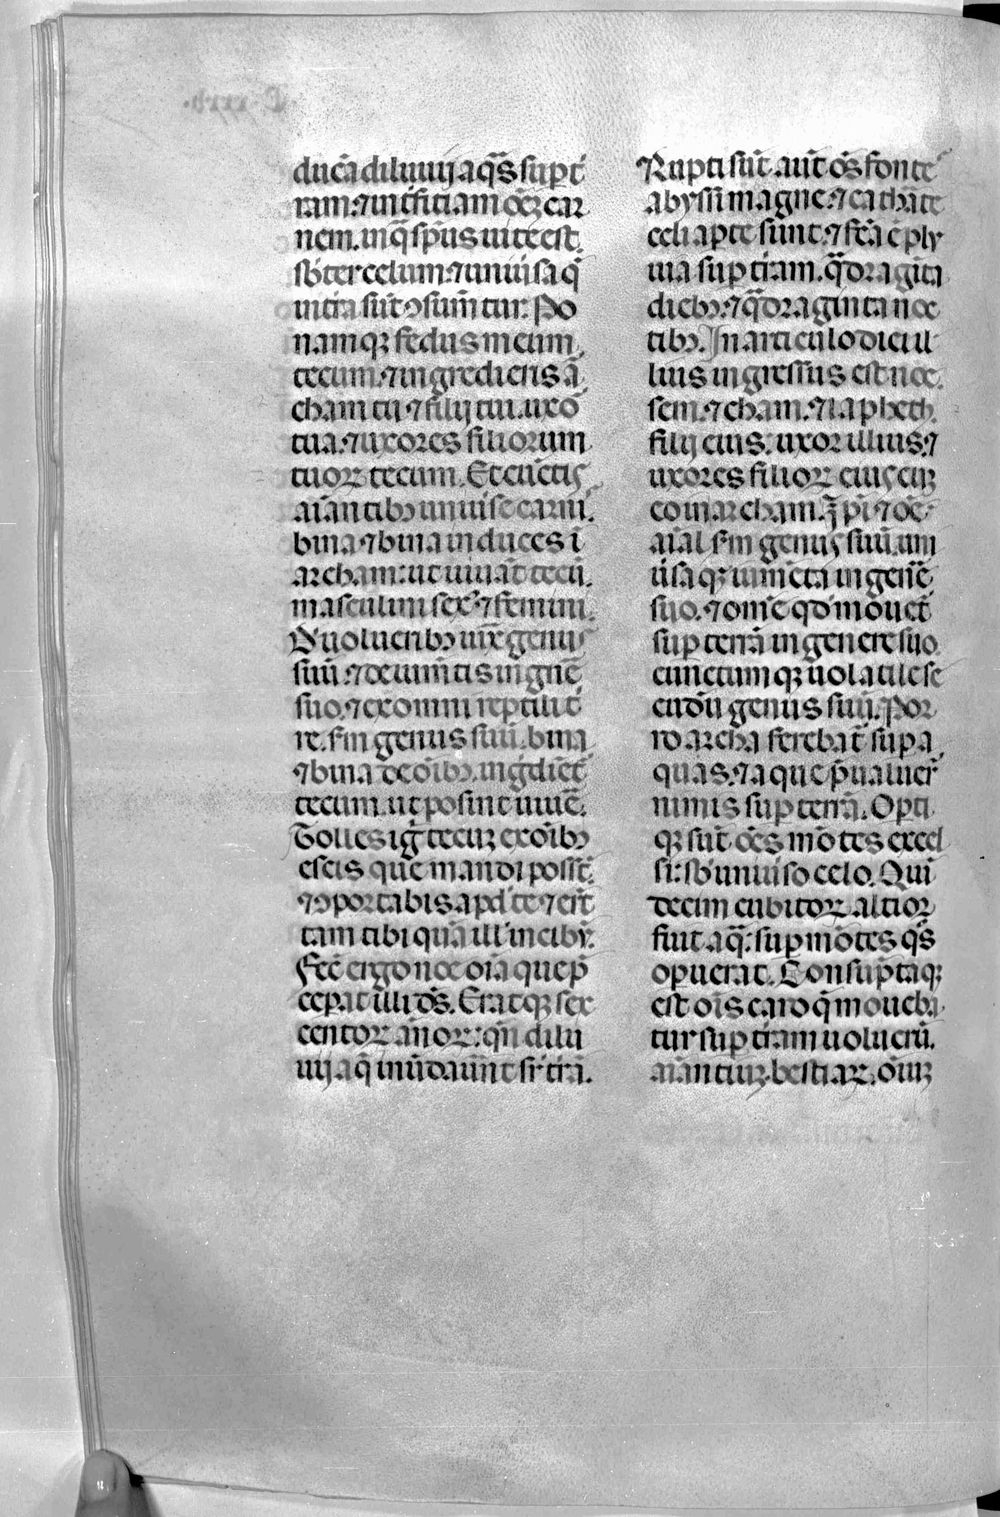 ducā diluuij aq̄s sup t̄
ram: ⁊ int̄ficiam oēꝫ car
nem. in q̄ spūs uite est
sb̄ter celum: ⁊ uniūsa q̄
in t̄ra sūt ↄsum̄tur: Po
namqꝫ fedus meum
tecum: ⁊ ingredieris ā
cham tu ⁊ filij tui. uxō
tua: ⁊ uxores filiorum
tuoꝝ tecum. Et cūctis
aīantibꝫ uniuīse carni.
bina ⁊ bina induces ī
archam: ut uiuāt tecū.
masculini sex᷒ ⁊ femini.
D uolucribꝫ iux̄ genus
suū: ⁊ de ium̄tis in gn̄e
suo. ⁊ ex omni reptili t̄
re. scd̄m genus suū. bina
⁊ bina de oībꝫ. ingdiēt̄
tecum. ut posint uiuē.
Tolles iḡ tecuꝫ ex oībꝫ
escis que mandi possūt.
⁊ ↄportabis apd̓ te ⁊ erūt
tam tibi quā ill̓ in cibꝫ.
Fēc ergo noe oīa que p̄
ceperat illi ds̄. Eratqꝫ sex
centoꝝ ānoꝝ: qn̄ dilu
uij aq̄ inūdauīnt sr̄ t̄rā.
Rupti sūt aūt oēs fonte
abyssi magne: ⁊ catharte
celi aperte sunt: ⁊ fcā ē plu
uia sup tr̄am. q̄draginta
diebꝫ: ⁊ q̄draginta noc
tibꝫ. In articulo diei il
lius ingressus est noe.
sem. ⁊ cham. ⁊ iapheth.
filij eius: uxor illius: ⁊
uxores filioꝝ eius cuꝫ
eo in archam. ip̄i ⁊ oē
aīal scd̄m genus suū. uni
ūsaqꝫ ium̄eta in genē
suo. ⁊ omē qd̄ mouet̄
sup terrā in genere suo
cunctumqꝫ uolatile se
cūdū genus suū. Por
ro archa ferebat̄ sup a
quas: ⁊ aque p̄ualuer̄
nimis sup terrā. Opti
qꝫ sūt oēs mōtes excel
si: sb̄ uniuīso celo. Qui
decim cubitoꝝ altior
fuit aq̄: sup mōtes q̄s
opuerat. Consūptaqꝫ
est oīs caro q̄ moueba
tur sup tr̄am uolucrū.
aīantiuꝫ. bestiaꝝ. oīuꝫ